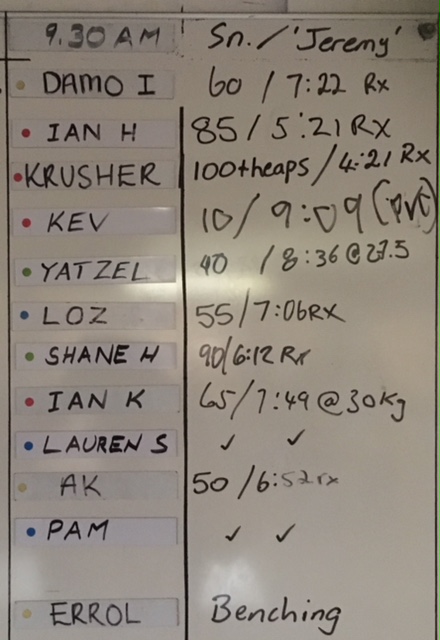 9.30 AM Sn. / 'Jeremy'
DAMO I 60 / 7:22 Rx
IAN H 85 / 5:21 RX
KRUSHER 100+heaps / 4:21 Rx
KEV 10 / 9:09 (pvc)
YATZEL 40 / 8:36 @ 27.5
LOZ 55 / 7:06 RX
SHANE H 90/6:12 Rx
IAN K 65/7:49 @ 30kg
LAUREN S ✓ ✓
AK 50 / 6:52 rx
PAM ✓ ✓
ERROL Benching